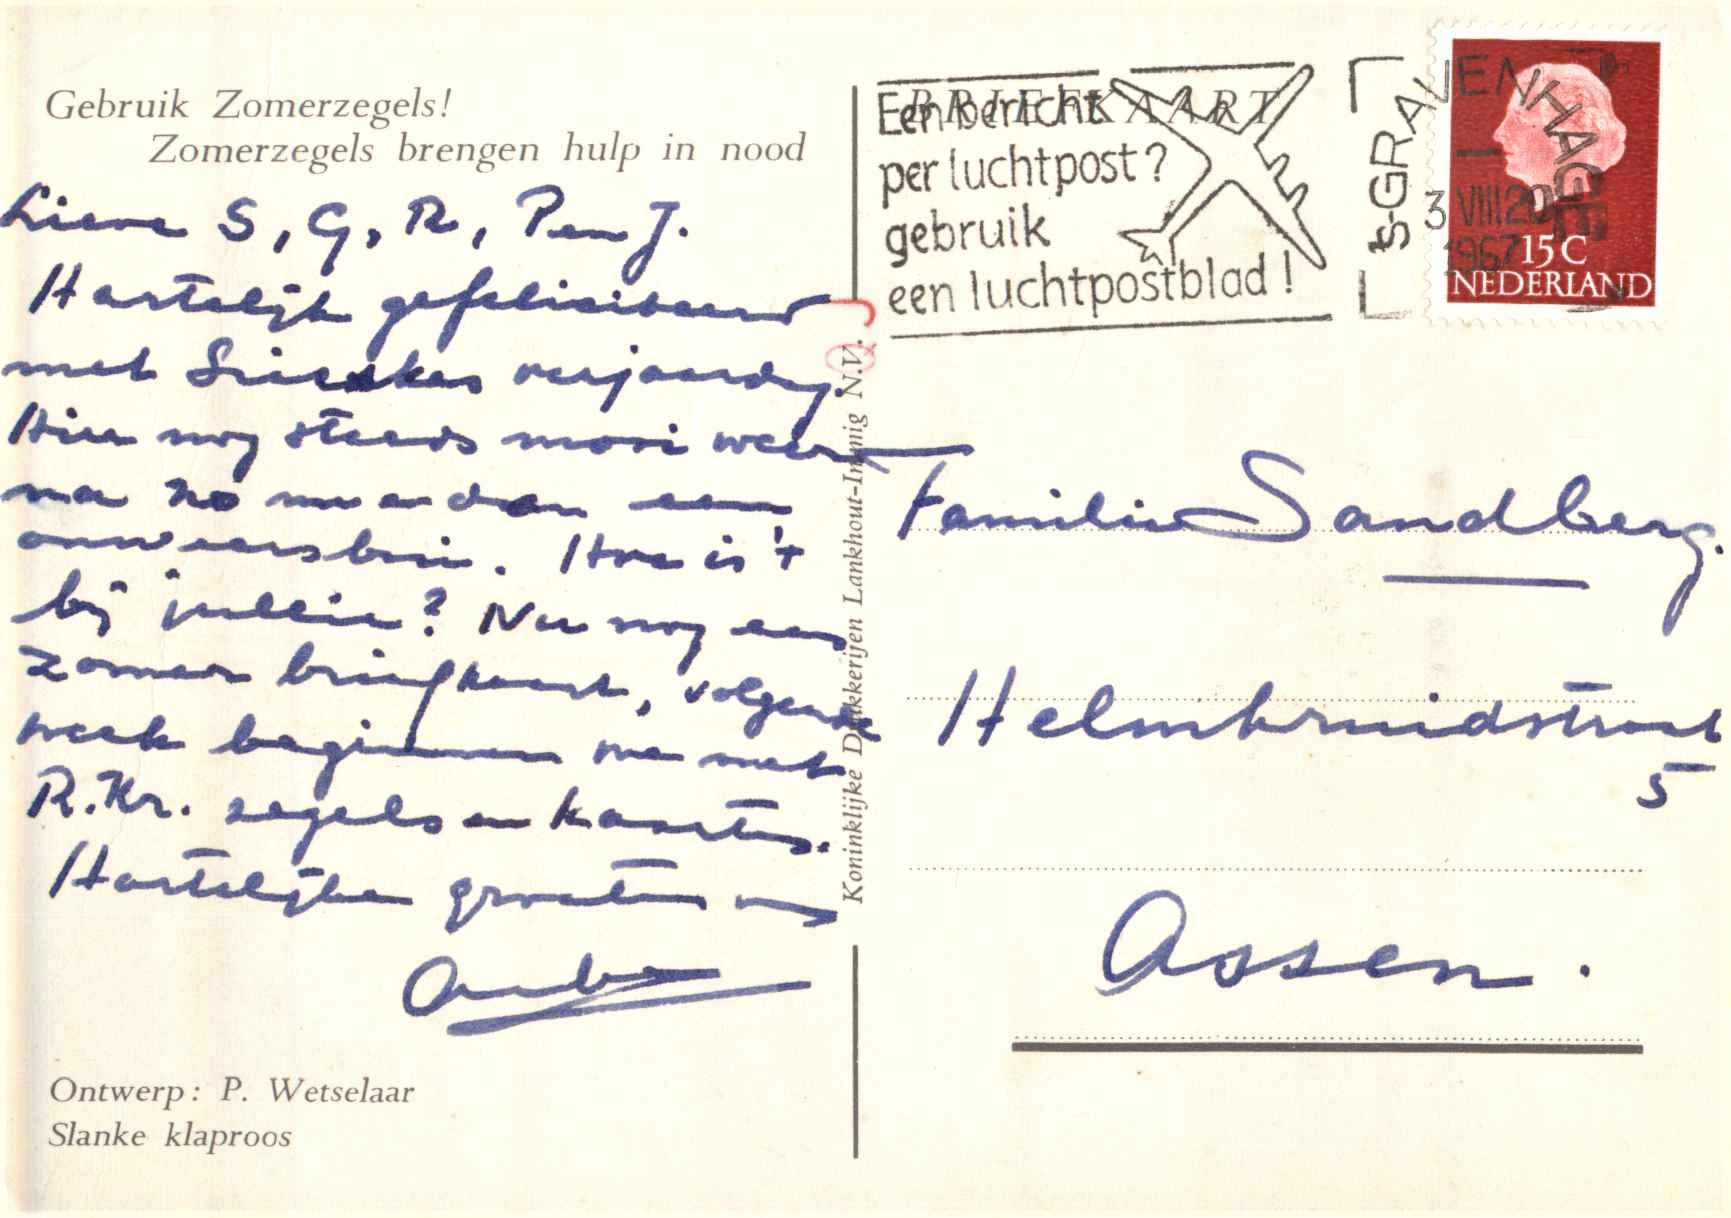 Gebruik Zomerzegels!
Zomerzegels brengen hulp in nood
Lieve S, G, R, P en J.
Hartelijk gefeliciteerd
met verjaardag.
Hier nog steeds mooi weer
na nu en dan een
onweersbui. Hoe is 't
bij jullie? Nu nog een
zomer briefkaart, volgende
week beginnen we met
R.Kr. zegels en kaarten.
Hartelijke groeten van
Ontwerp: P. Wetselaar
Slanke klaproos
Koninklijke Drukkerijen Lankhout-Immig N.V.
BRIEFKAART
Een bericht
per luchtpost?
gebruik
een luchtpostblad!
's-GRAVENHAGE
3 VIII 20
1967
15 C
NEDERLAND
Familie Sandberg.
Helmkruidstraat
5
Assen.